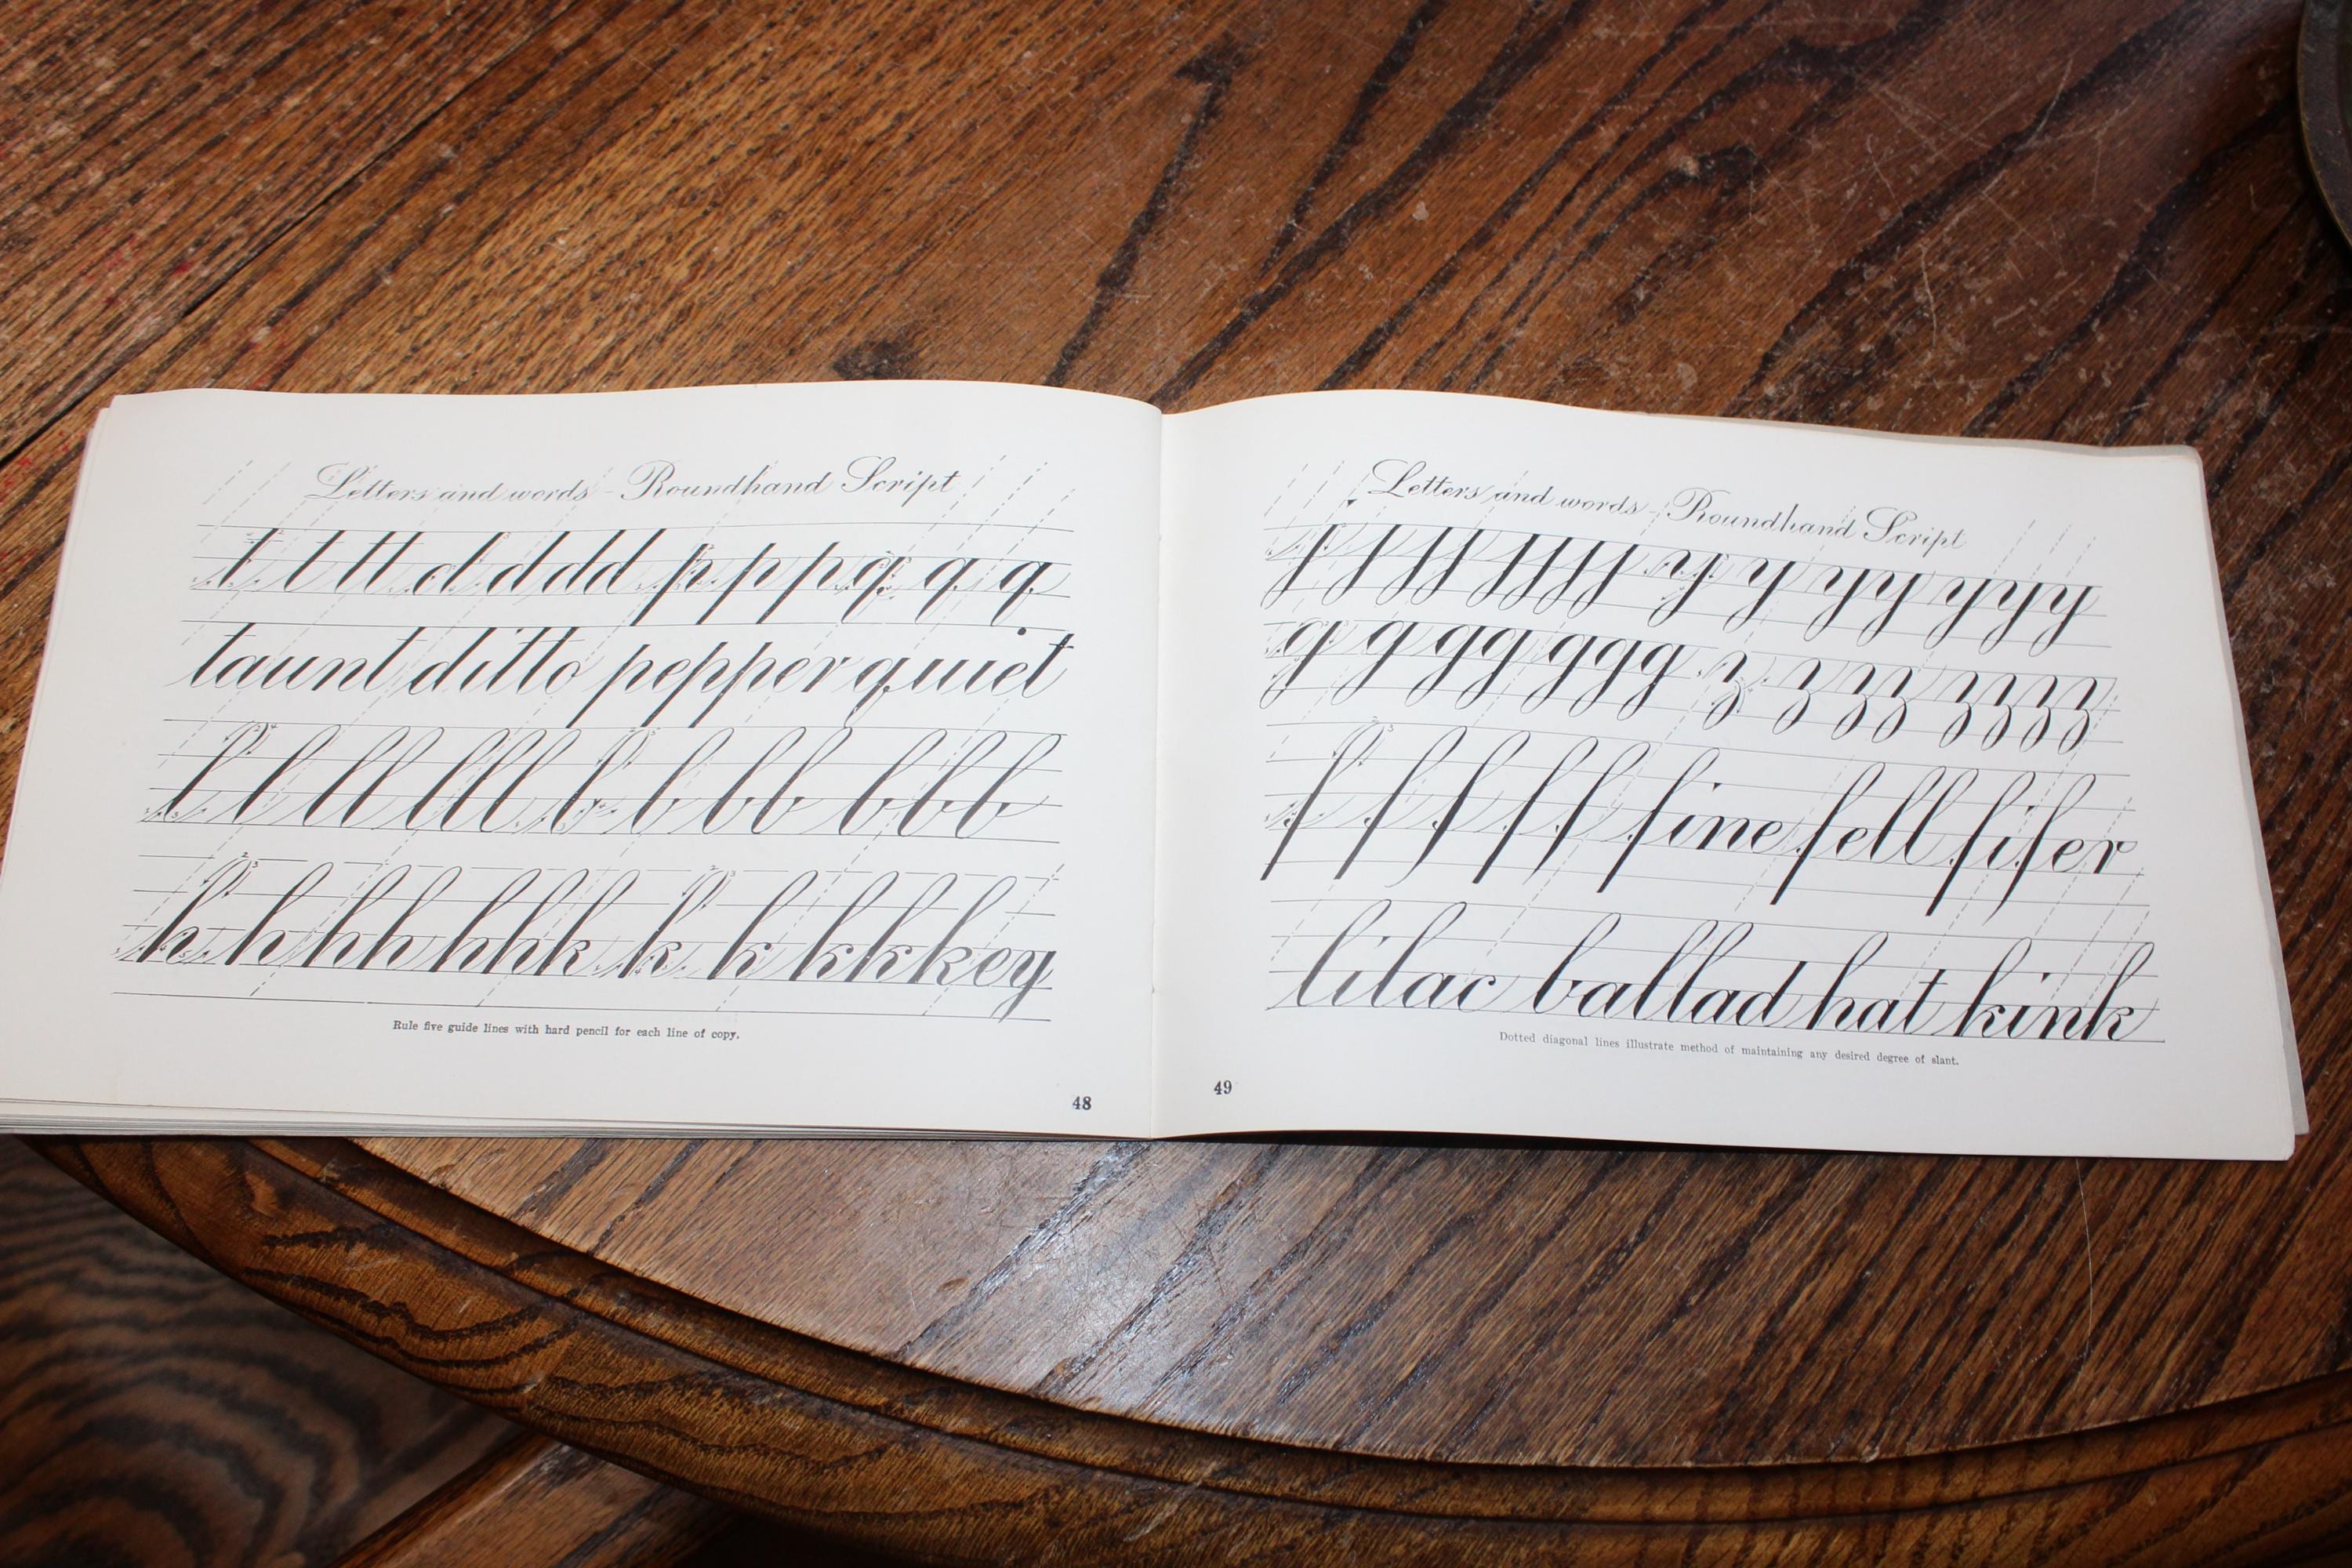 Letters and words - Roundhand Script
t t t t d d d d p p p p q q q
taunt ditto pepper quiet
l l l l l l l b b b b b b b
h h h h h h k k k k k key
Rule five guide lines with hard pencil for each line of copy.
48
Letters and words - Roundhand Script
j j j j j j j j y y y y y y y
g g g g g g g z z z z z z z z
f f f f f fine fell fifer
lilac ballad hat kink
Dotted diagonal lines illustrate method of maintaining any desired degree of slant.
49